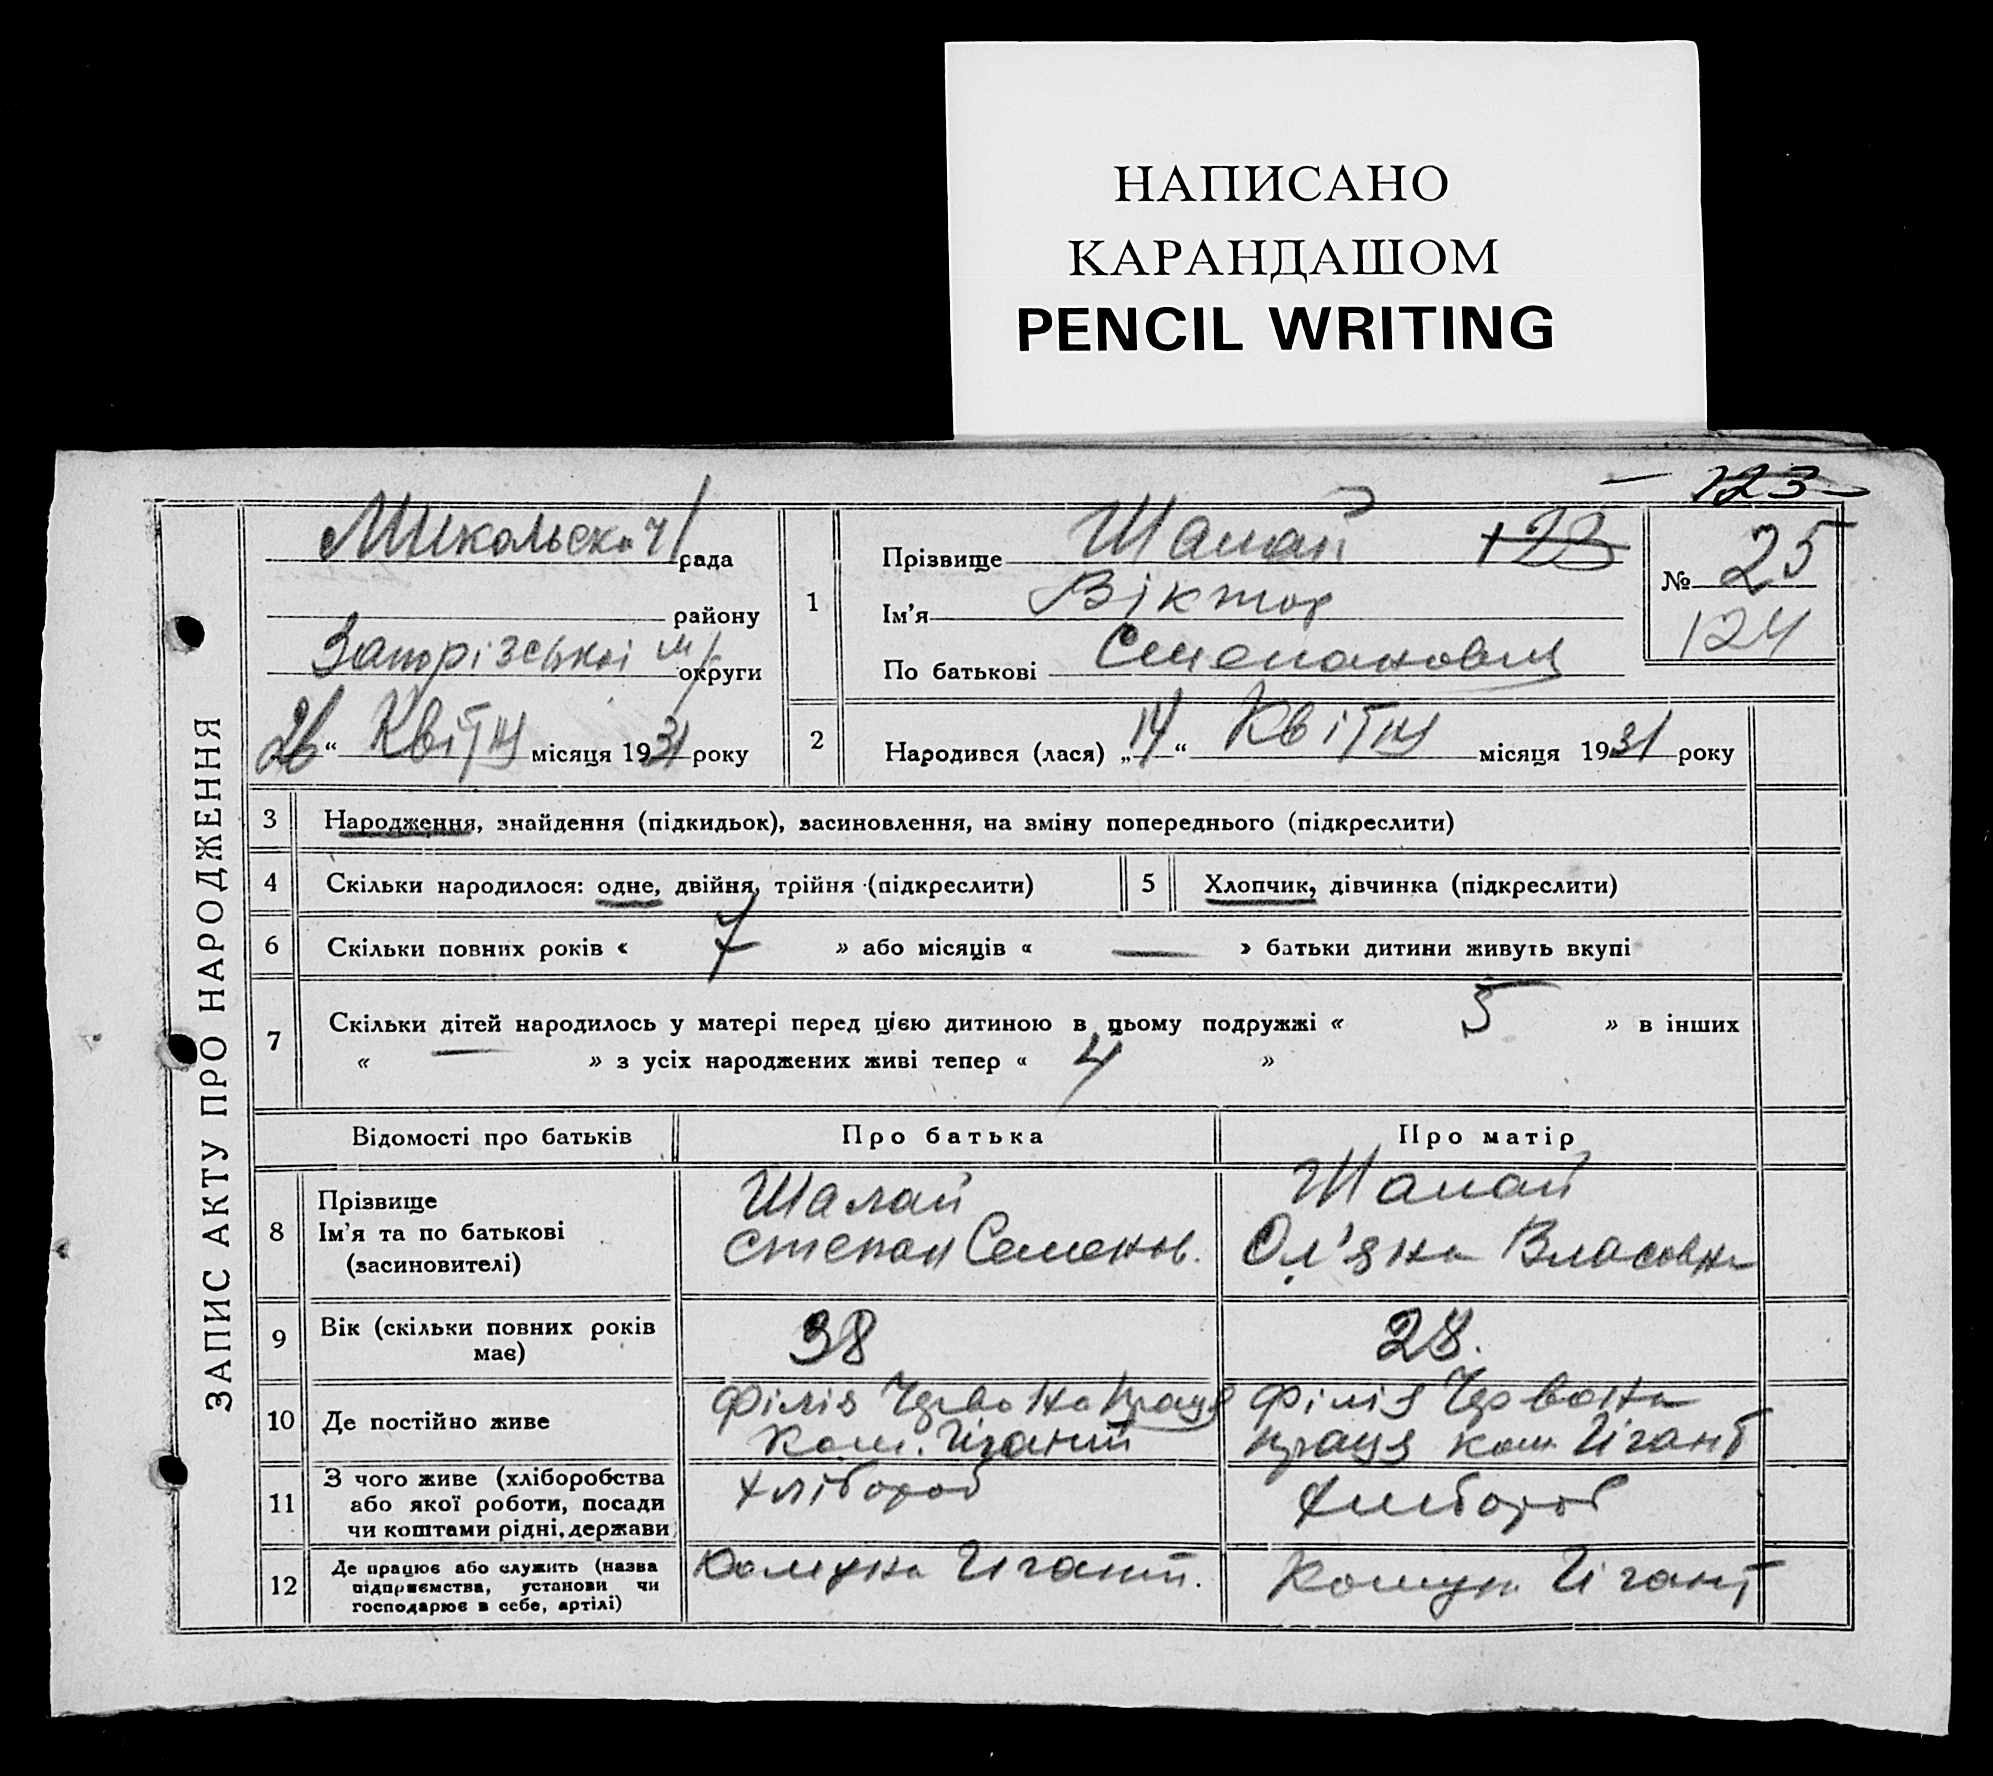 НАПИСАНО
КАРАНДАШОМ
PENCIL WRITING
123
ЗАПИС АКТУ ПРО НАРОДЖЕННЯ
Микольска рада
району
Запорізської м/р округи
26 “ Квітня місяця 1931 року
1
Прізвище Шамай 123
Ім'я Віктор
По батькові Степанович
№ 25
124
2 Народився (лася) „14“ Квітня місяця 1931 року
3 Народження, знайдення (підкидьок), засиновлення, на зміну попереднього (підкреслити)
4 Скільки народилося: одне, двійня, трійня (підкреслити) 5 Хлопчик, дівчинка (підкреслити)
6 Скільки повних років « 7 » або місяців « — » батьки дитини живуть вкупі
7 Скільки дітей народилось у матері перед цією дитиною в цьому подружжі « 5 » в інших
« — » з усіх народжених живі тепер « 4 »
Відомості про батьків Про батька Про матір
8 Прізвище Шамай Шамай
Ім'я та по батькові Степан Семенов. Ол'яна Власовна
(засиновителі)
9 Вік (скільки повних років має) 38 28.
10 Де постійно живе Філія Червона праця Філія Червона
Ком. Гігант праця ком Гігант
11 З чого живе (хліборобства хлібороб хлібороб
або якої роботи, посади
чи коштами рідні, держави
12 Де працює або служить (назва Комуна Гігант. Комуна Гігант
підприємства, установи чи
господарює в себе, артілі)